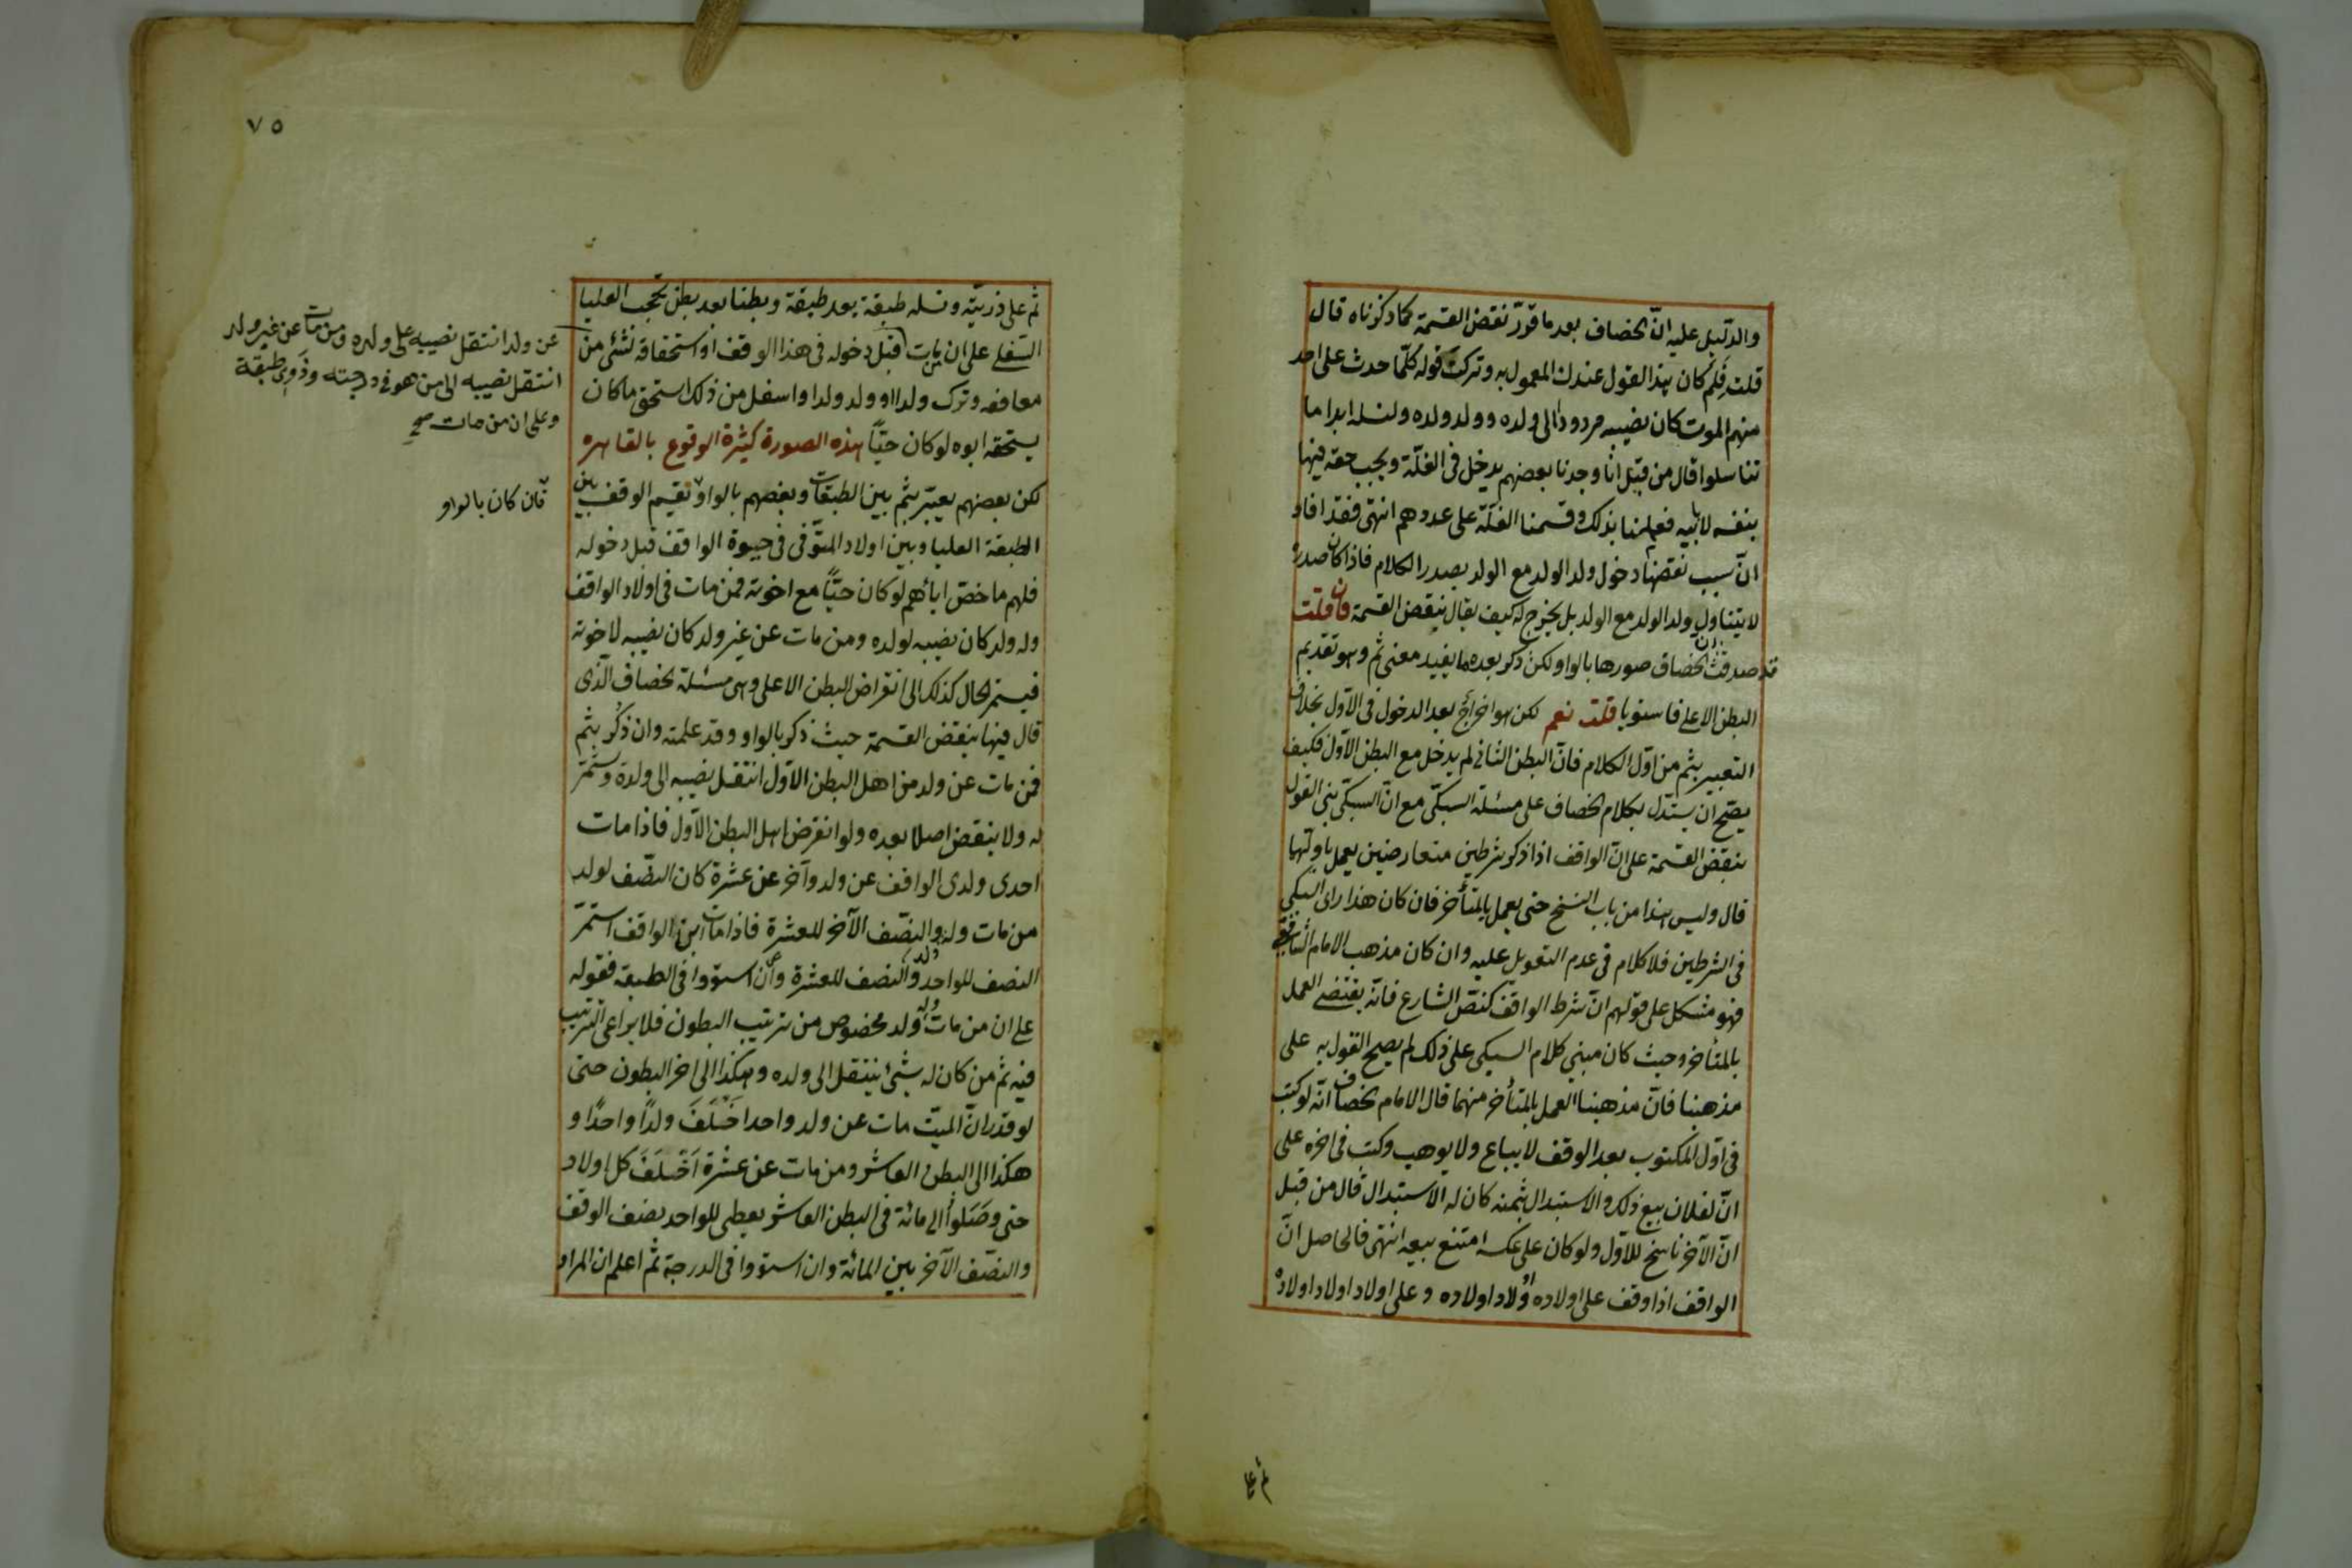 والدليل عليه ان الخصاف بعد ما قرر نقض القسمة كما ذكرناه قال
قلت فلم كان هذا القول عندك المعمول به وتركت قوله كلما حدث على احد
منهم الموت كان نصيبه مردودا الى ولده وولد ولده ولنسله ابدا ما
تناسلوا قال من قبل انا وجدنا بعضهم يدخل في الغلة ويجب حقه فيها
بنفسه لا بابيه فعلمنا بذلك وقسمنا الغلة على عددهم انتهى فقد افاد
ان سبب نقضها دخول ولد الولد مع الولد بصدر الكلام فاذا كان صدره
لا يتناول ولد الولد مع الولد بل يخرج له كيف يقال ينقض القسمة فان قلت
قد صدقت ان الخصاف صورها بالواو لكن ذكر بعده ما يفيد معنى ثم وهو تقديم
البطن الاعلى فاستويا قلت نعم لكن هو اخراج بعد الدخول في الاول بخلاف
التعبير بثم من اول الكلام فان البطن الثاني لم يدخل مع البطن الاول فكيف
يصح ان يستدل بكلام الخصاف على مسئلة السبكي مع ان السبكي بنى القول
بنقض القسمة على ان الواقف اذا ذكر شرطين متعارضين يعمل باولهما
قال وليس هذا من باب النسخ حتى يعمل بالمتأخر فان كان هذا راى السبكي
في الشرطين فلا كلام في عدم التعويل عليه وان كان مذهب الامام الشافعي
فهو مشكل على قولهم ان شرط الواقف كنص الشارع فانه يقتضي العمل
بالمتأخر وحيث كان مبنى كلام السبكي على ذلك لم يصح القول به على
مذهبنا فان مذهبنا العمل بالمتأخر منهما قال الامام الخصاف انه لو كتب
في اول المكتوب بعد الوقف لا يباع ولا يوهب وكتب في اخره على
ان لفلان بيع ذلك والاستبدال بثمنه كان له الاستبدال قال من قبل
ان الآخر ناسخ للاول ولو كان على عكسه امتنع بيعه انتهى فالحاصل ان
الواقف اذا وقف على اولاده واولاد اولاده وعلى اولاد اولاد اولاده
ثم على
٧٥
ثم على ذريته ونسله طبقة بعد طبقة وبطنا بعد بطن تحجب العليا
السفلى على ان من مات قبل دخوله في هذا الوقف او استحقاقه لشئ من
منافعه وترك ولدا او ولد ولد او اسفل من ذلك استحق ما كان
يستحقه ابوه لو كان حيا هذه الصورة كثيرة الوقوع بالقاهره
لكن بعضهم يعبر بثم بين الطبقات وبعضهم بالواو يقسم الوقف بين
الطبقة العليا وبين اولاد المتوفى في حيوة الواقف قبل دخوله
فلهم ما خص ابائهم لو كان حيا مع اخوته فمن مات في اولاد الواقف
وله ولد كان نصيبه لولده ومن مات عن غير ولد كان نصيبه لاخوته
فيستمر الحال كذلك الى انقراض البطن الاعلى وهي مسئلة الخصاف الذى
قال فيها بنقض القسمة حيث ذكر بالواو وقد علمته وان ذكر بثم
فمن مات عن ولد من اهل البطن الاول انتقل نصيبه الى ولده ويستمر
له ولا ينقض اصلا بعده ولو انقرض اهل البطن الاول فاذا مات
احدى ولدى الواقف عن ولد وآخر عن عشرة كان النصف لولد
من مات وله ولد والنصف الآخر للعشرة فاذا مات ابن الواقف استمر
النصف للواحد والنصف للعشرة وان استووا في الطبقة فقوله
على ان من مات وله ولد مخصوص من ترتيب البطون فلا يراعى الترتيب
فيه ثم من كان له شئ ينتقل الى ولده وهكذا الى اخر البطون حتى
لو قدر ان الميت مات عن ولد واحد خلف ولدا واحدا و
هكذا الى البطن العاشر ومن مات عن عشرة اخلف كل اولاد
حتى وصلوا الى مائة في البطن العاشر يعطى للواحد نصف الوقف
والنصف الآخر بين المائة وان استووا في الدرجة ثم اعلم ان المراد
عن ولد انتقل نصيبه على ولده ومن مات عن غير ولد
انتقل نصيبه الى من هو في درجته وذوى طبقة
وعلى ان من مات صح
فان كان بالواو